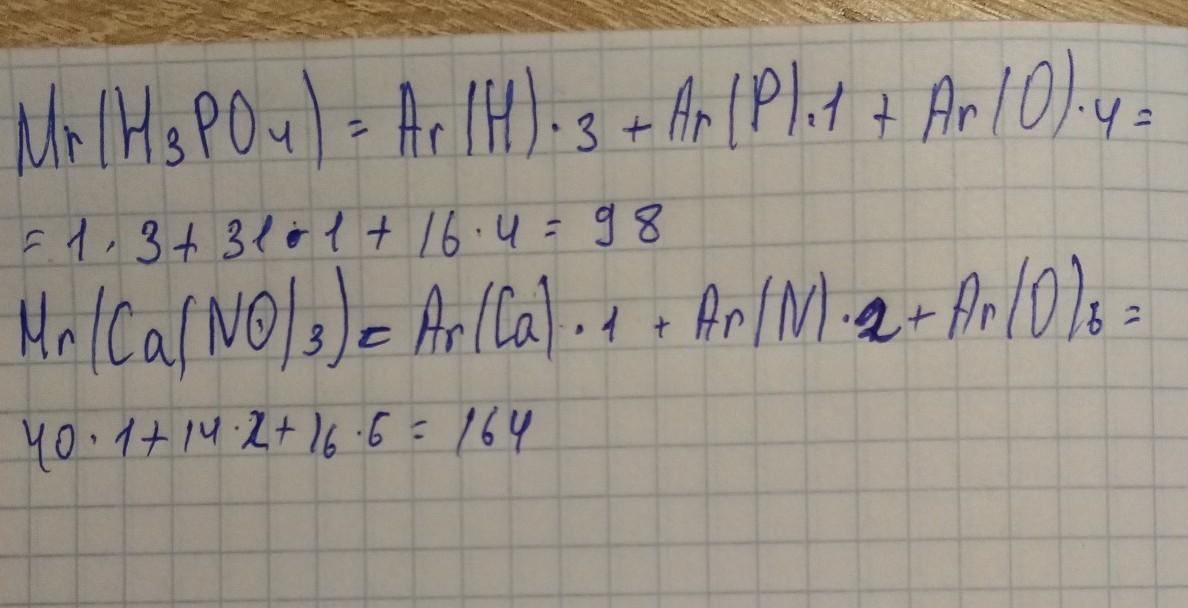 Mr(H₃PO₄) = Ar(H)·3 + Ar(P)·1 + Ar(O)·4 =
= 1·3 + 31·1 + 16·4 = 98
Mr(Ca(NO)₃) = Ar(Ca)·1 + Ar(N)·2 + Ar(O)·6 =
40·1 + 14·2 + 16·6 = 164